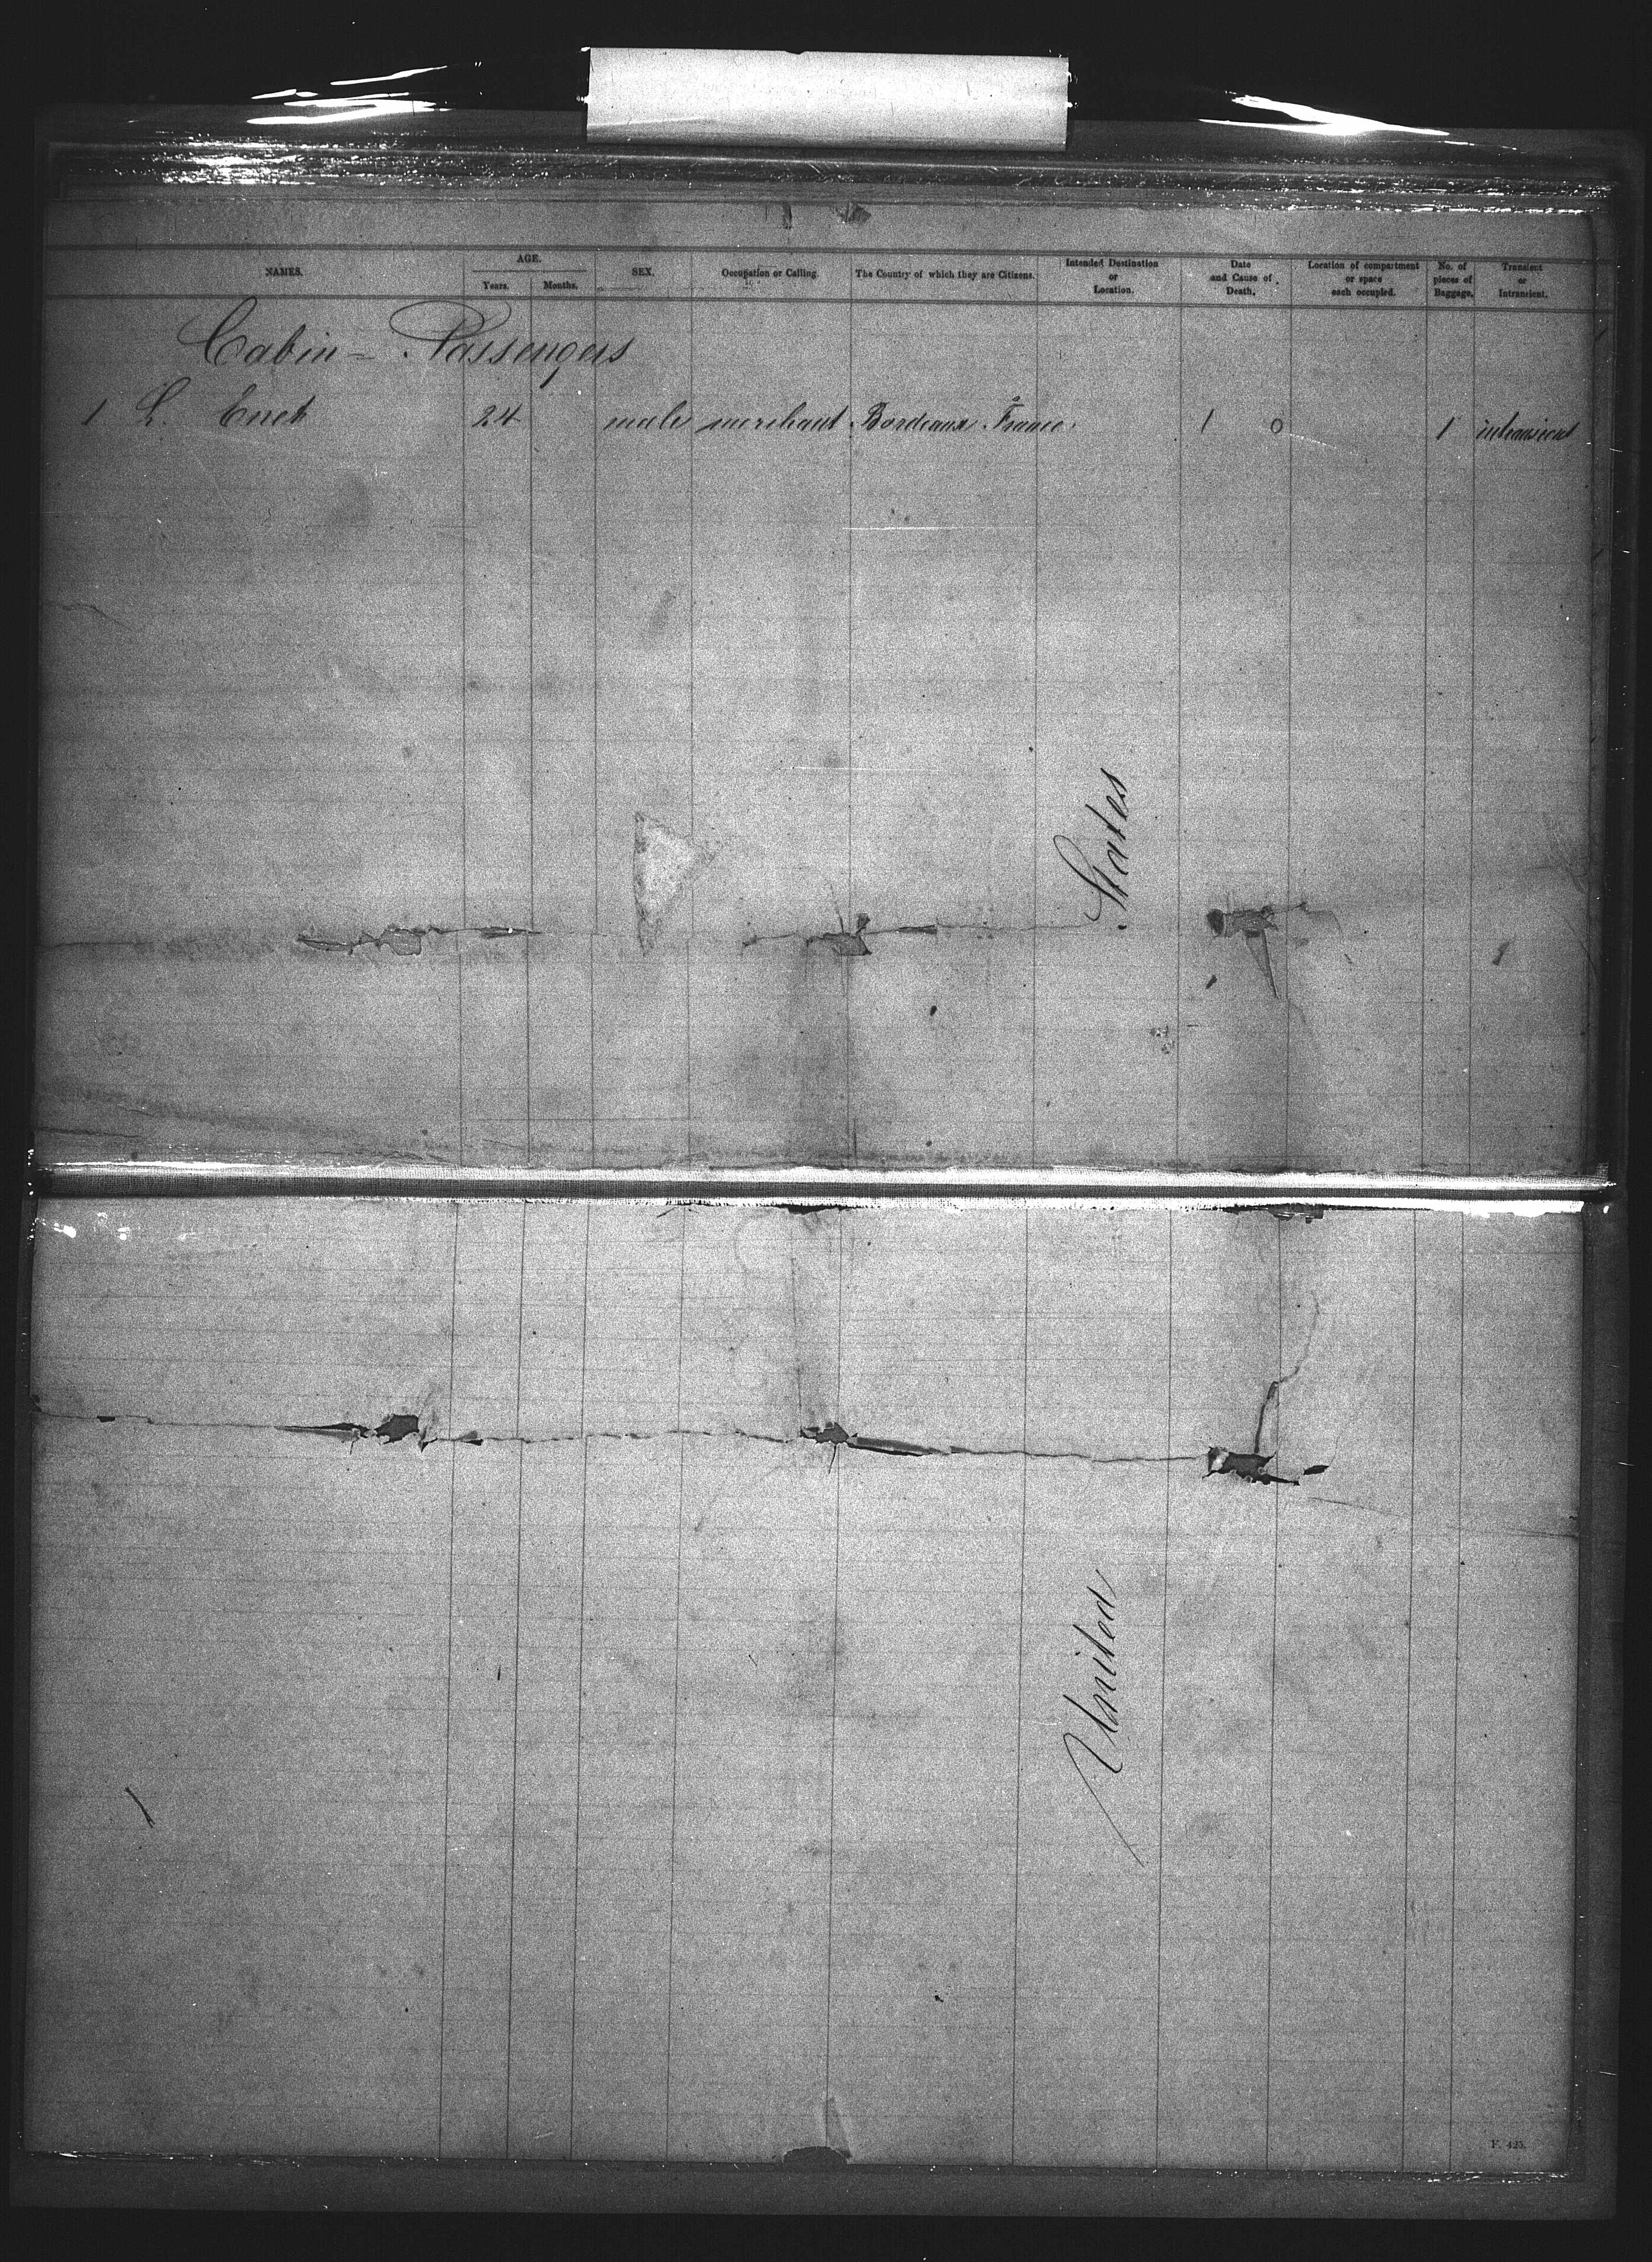 NAMES. AGE. SEX. Occupation or Calling. The Country of which they are Citizens. Intended Destination or Location. Date and Cause of Death. Location of compartment or space each occupied. No. of pieces of Baggage. Transient or Intransient.
Years. Months.
Cabin - Passengers
1 L. 24 male merchant Bordeaux France 1 0 1 intransient
United States
F. 425.